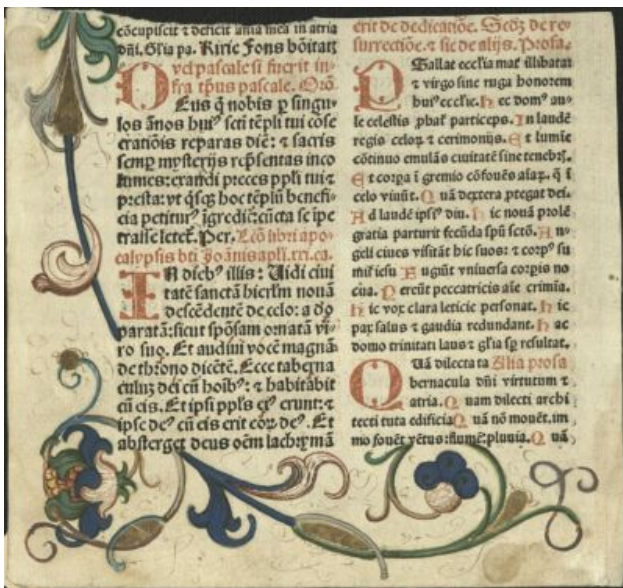 cõcupiscit ⁊ deficit aĩa mea in atria
dñi. Glĩa pa. Kirie Fons bõitatꝭ
vel pascale si fuerit in-
fra tp̃us pascale. Orõ.
DEus q̃ nobis ꝑ singu-
los ãnos huiꝰ sc̃ti tẽpli tui cõse
crationis reparas diẽ: ⁊ sacris
semꝑ mysterijs rep̃sentas inco
lumes: exaudi preces pp̃li tui ⁊
p̃sta: vt q̃sq̃ hoc tẽplũ benefi-
cia petiturꝰ ĩgredit᷑: cũcta se ĩpe
trasse letet᷑. Per. Lcõ libri apo-
calypsis bt̃i Ioãnis apl̃i. xxi. ca.
IN diebꝰ illis: Uidi ciui
tatẽ sanctã hierl̃m nouã
descẽdentẽ de celo: a dõ
paratã: sicut spõsam ornatã vi-
ro suo. Et audiui vocẽ magnã
de throno dicẽtẽ. Ecce taberna
culũ dei cũ hoĩbꝰ: ⁊ habitabit
cũ eis. Et ipsi pp̃ls eiꝰ erunt: ⁊
ipse deꝰ cũ eis erit eoꝝ deꝰ. Et
absterget deus oẽm lachrymã
erit de dedicatiõe. Secꝰ de re-
surrectiõe. ⁊ sic de alijs. Prosa.
PSallat eccl̃ia mať illibata
⁊ virgo sine ruga honorem
huiꝰ eccl̃ie. Hec domꝰ au-
le celestis ꝓbat᷑ particeps. In laudẽ
regis celoꝝ ⁊ cerimonijs. Et lumĩe
cõtinuo emulãs ciuitatẽ sine tenebrꝭ.
Et corꝑa ĩ gremio cõfouẽs aĩaꝝ. q̃ ĩ
celo viuũt. Quã dextera ꝓtegat dei.
Ad laudẽ ipsiꝰ diu. Hic nouã prolẽ
gratia parturit fecũda sp̃ũ sc̃tõ. An-
geli ciues visitãt hic suos: ⁊ corpꝰ su
mit᷑ iesu. Fugiũt vniuersa corꝑis no
cua. Pereũt peccatricis aĩe crimĩa.
Hic vox clara leticie personat. Hic
pax salus ⁊ gaudia redundant. Hac
domo trinitati laus ⁊ gl̃ia sꝑ resultat.
QUã dilecta ta Alia prosa
bernacula dñi virtutum ⁊
atria. Quam dilecti archi
tecti tuta edificia Quã nõ mouẽt. im
mo fouẽt vẽtus: flumẽ: pluuia. Quã